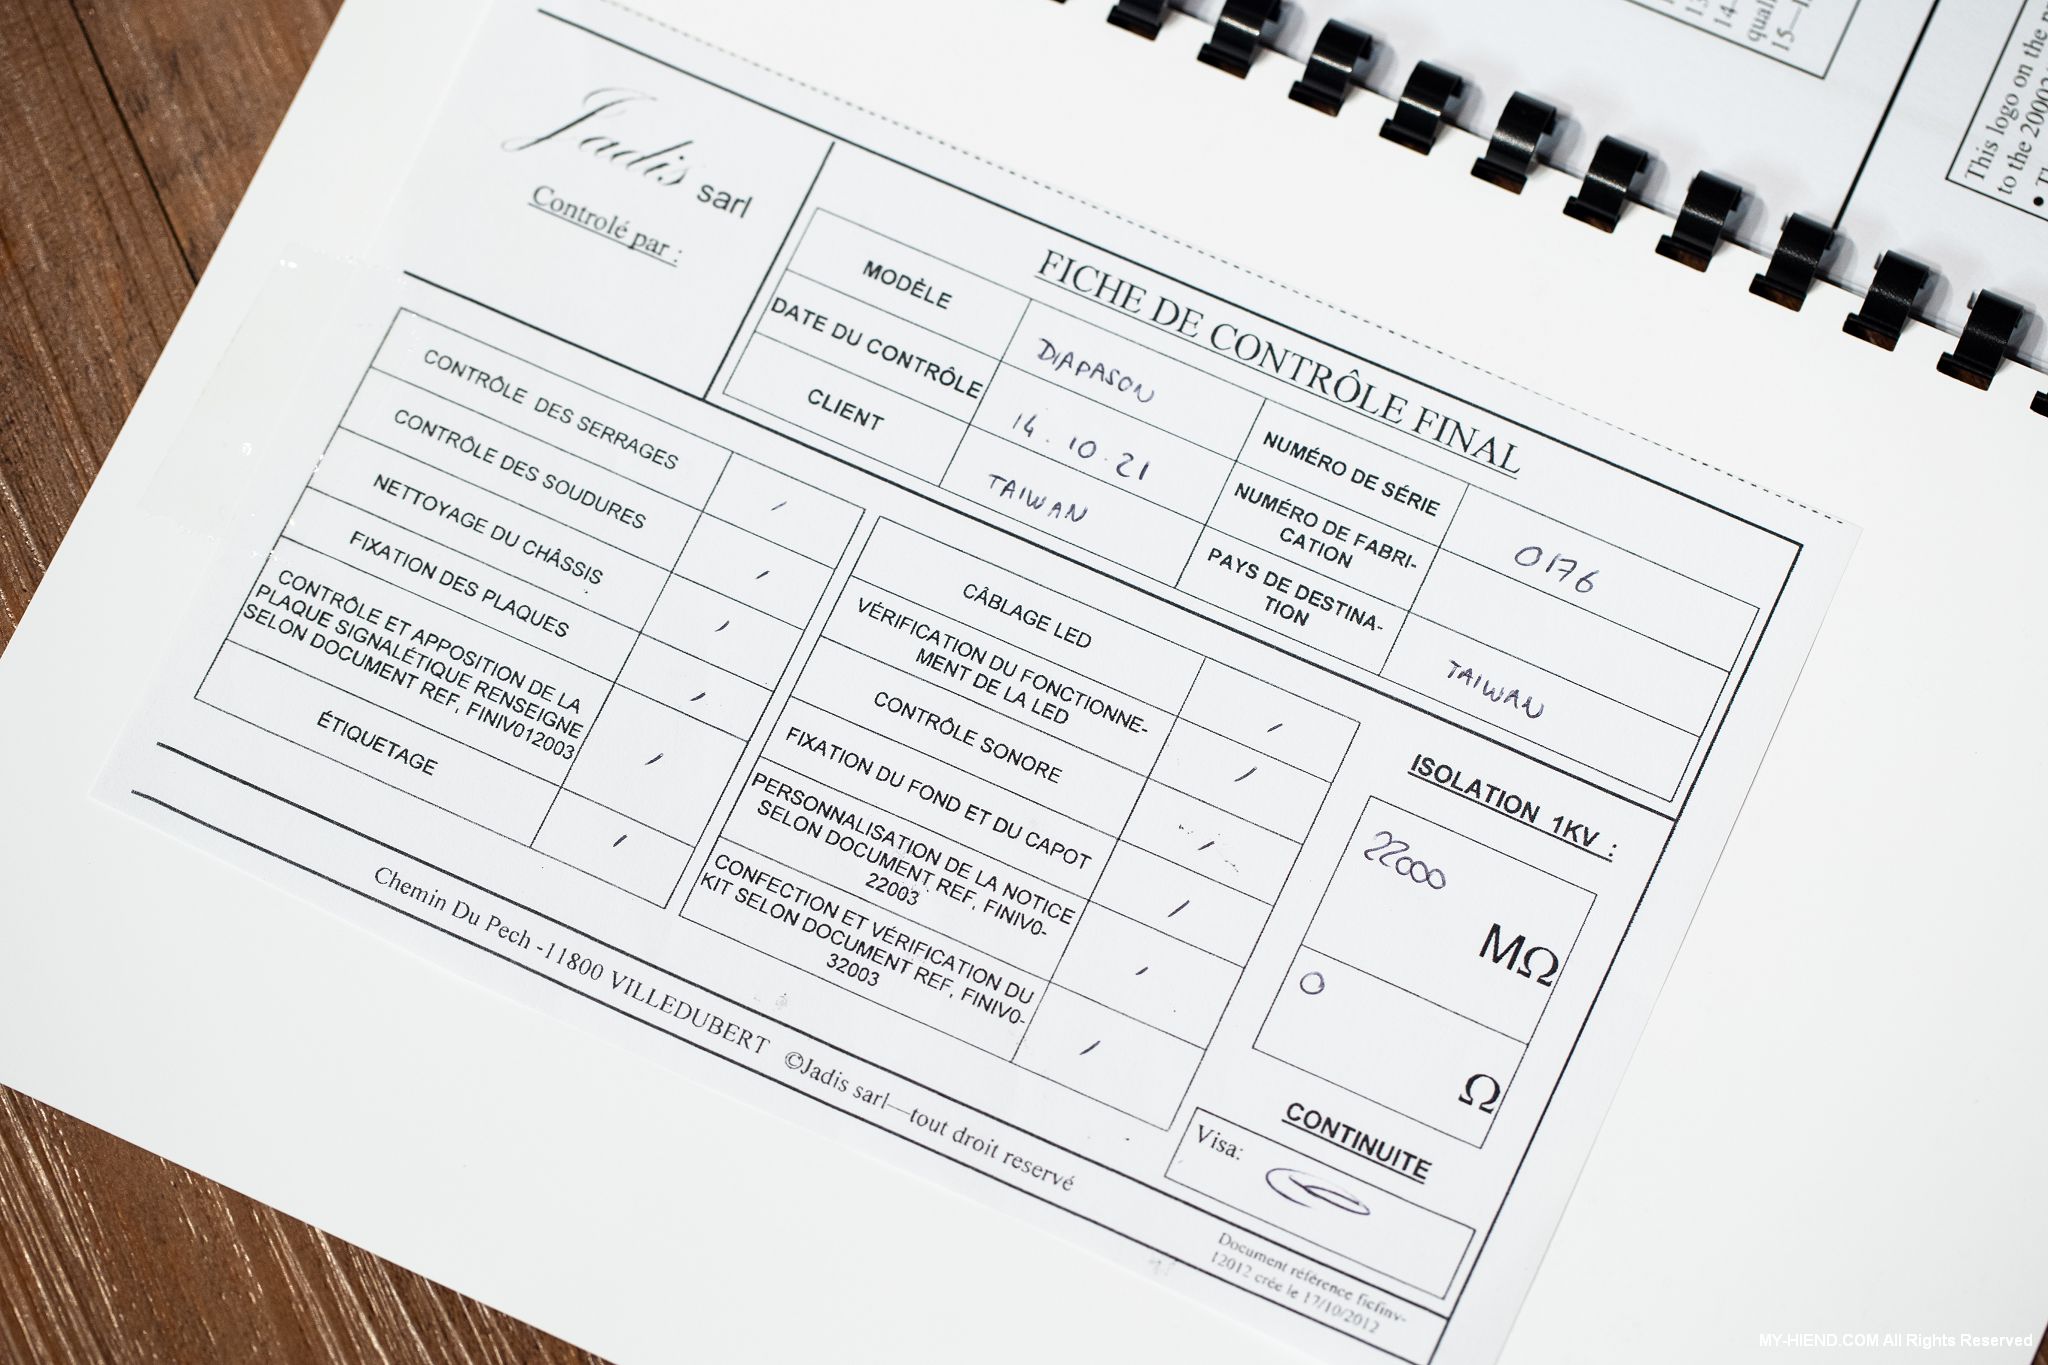 Jadis sarl
Controlé par :
FICHE DE CONTRÔLE FINAL
MODÈLE
DIAPASON
NUMÉRO DE SÉRIE
0176
DATE DU CONTRÔLE
14.10.21
NUMÉRO DE FABRI-
CATION
CLIENT
TAIWAN
PAYS DE DESTINA-
TION
TAIWAN
CONTRÔLE DES SERRAGES
CONTRÔLE DES SOUDURES
NETTOYAGE DU CHÂSSIS
FIXATION DES PLAQUES
CONTRÔLE ET APPOSITION DE LA
PLAQUE SIGNALÉTIQUE RENSEIGNE
SELON DOCUMENT REF, FINIV012003
ÉTIQUETAGE
CÂBLAGE LED
VÉRIFICATION DU FONCTIONNE-
MENT DE LA LED
CONTRÔLE SONORE
FIXATION DU FOND ET DU CAPOT
PERSONNALISATION DE LA NOTICE
SELON DOCUMENT REF, FINIV0-
22003
CONFECTION ET VÉRIFICATION DU
KIT SELON DOCUMENT REF, FINIV0-
32003
ISOLATION 1KV :
22000
MΩ
0
Ω
CONTINUITE
Visa:
Chemin Du Pech -11800 VILLEDUBERT ©Jadis sarl—tout droit reservé
Document référence ficfinv-
12012 crée le 17/10/2012
13
14—
quali
15—
This logo on the
to the 20002
MY-HIEND.COM All Rights Reserved